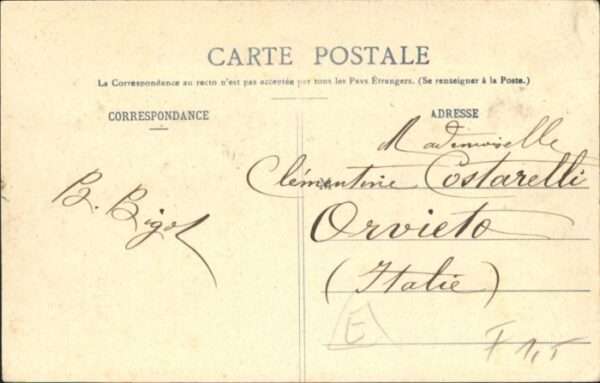 CARTE POSTALE
La Correspondance au recto n'est pas acceptée par tous les Pays Étrangers. (Se renseigner à la Poste.)
CORRESPONDANCE
ADRESSE
Mademoiselle
Clémentine Costarelli
Orvieto
(Italie)
B. Bigot
E